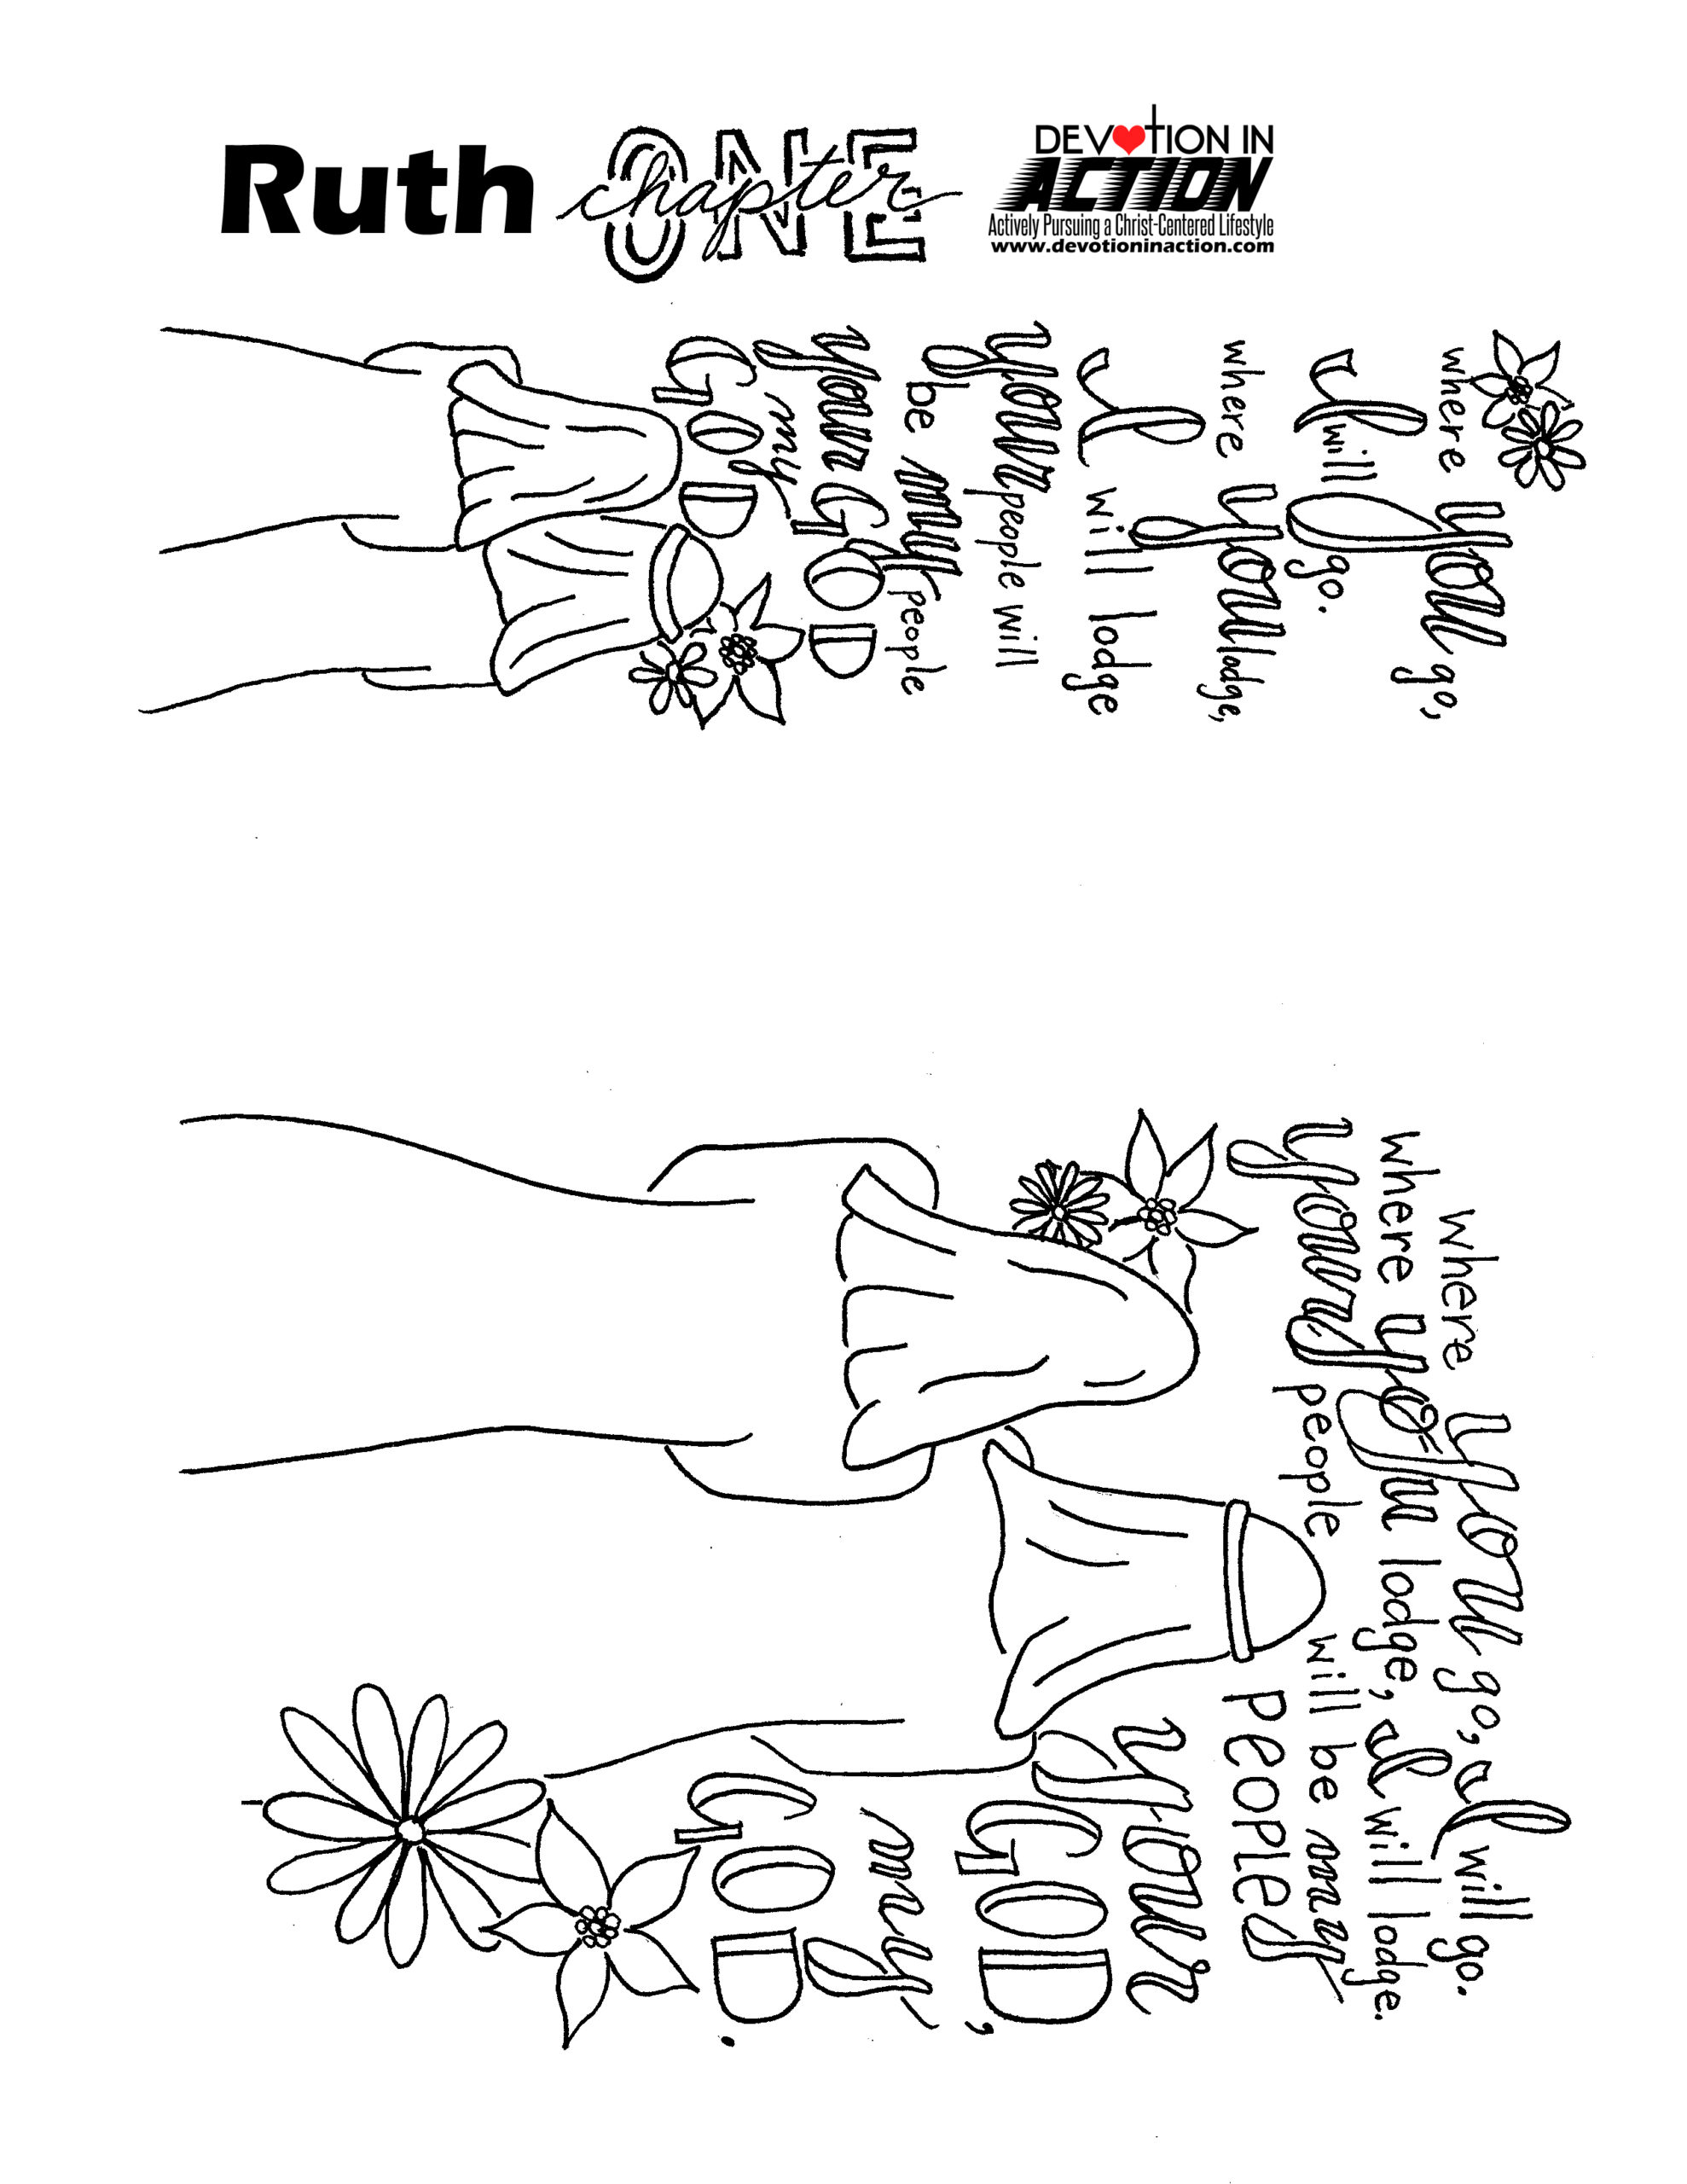 Ruth chapter ONE
DEVOTION IN
ACTION
Actively Pursuing a Christ-Centered Lifestyle
www.devotioninaction.com
where you go,
I will go.
where you lodge,
I will lodge
your people will
be my people
your GOD
my
GOD
where you go, I will go.
where you lodge, I will lodge.
your people will be my
people
your
GOD,
my
GOD.